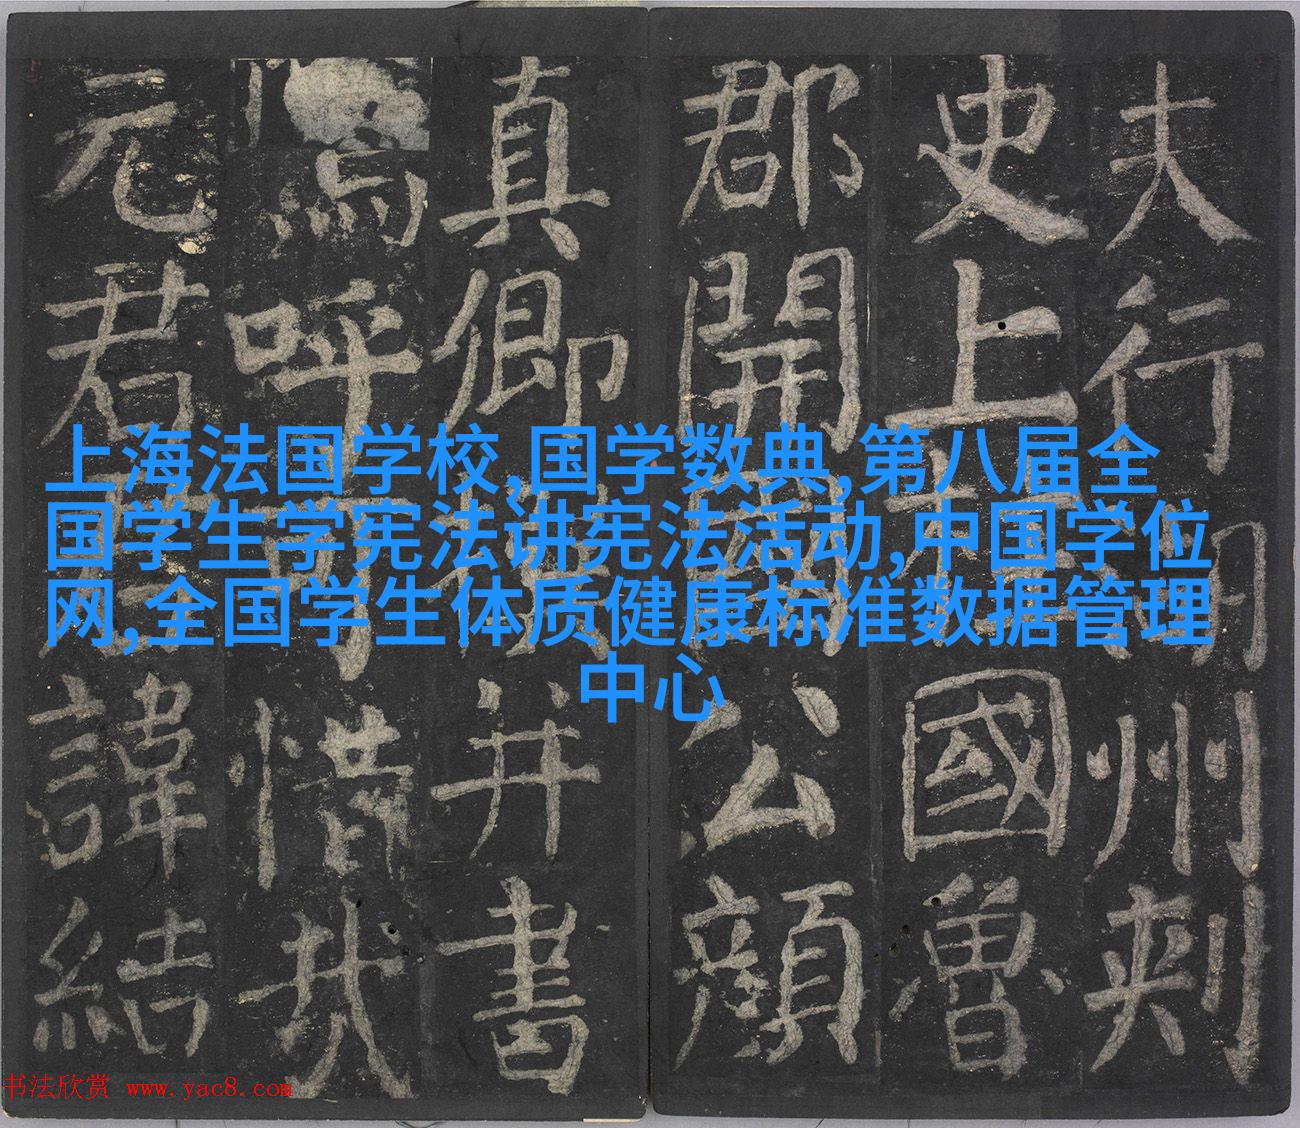 夫行湖州刺
史上柱國魯
郡開國公顏
真卿撰并書
嗚呼可惜哉
元君君諱結
上海法国学校,国学数典,第八届全
国学生学宪法讲宪法活动,中国学位
网,全国学生体质健康标准数据管理
中心
书法欣赏 www.yac8.com